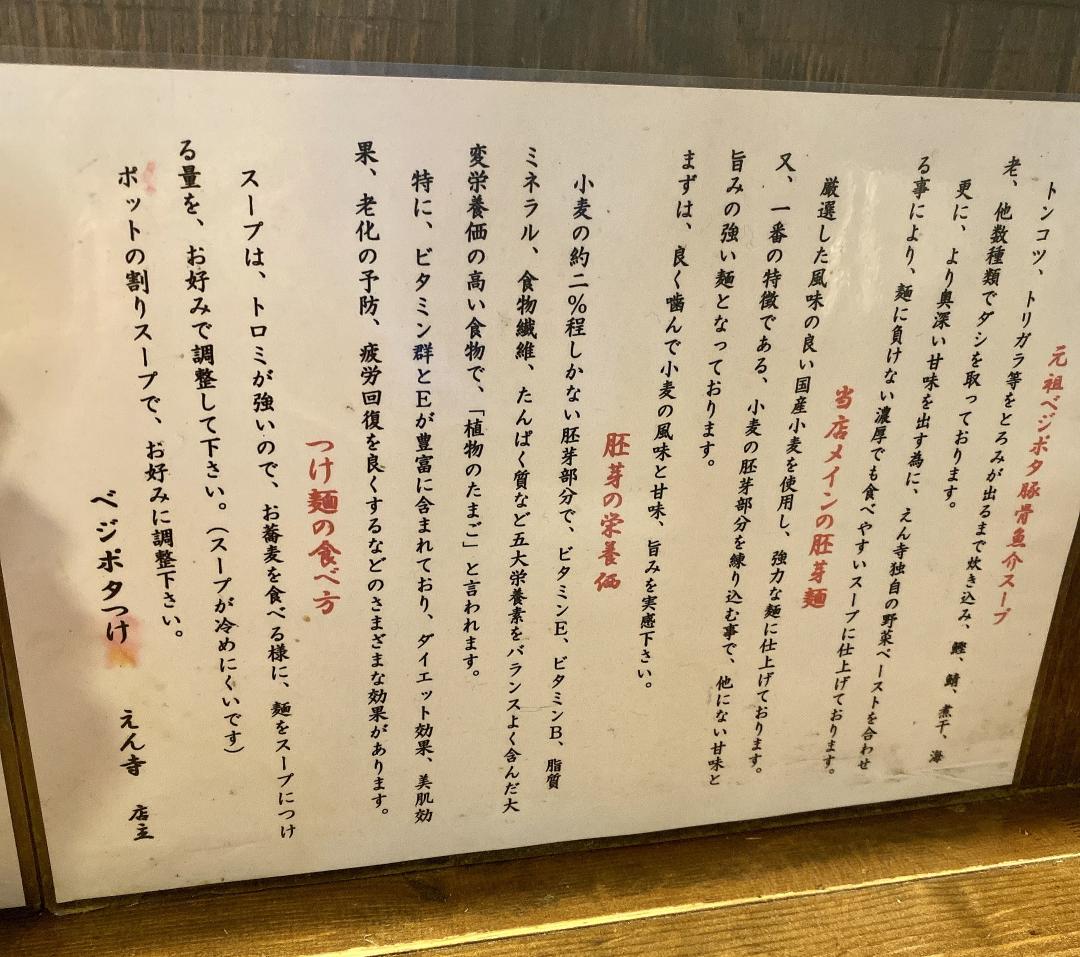 元祖ベジポタ豚骨魚介スープ
トンコツ、トリガラ等をとろみが出るまで炊き込み、鰹、鯖、煮干、海
老、他数種類でダシを取っております。
更に、より奥深い甘味を出す為に、えん寺独自の野菜ペーストを合わせ
る事により、麺に負けない濃厚でも食べやすいスープに仕上げております。
当店メインの胚芽麺
厳選した風味の良い国産小麦を使用し、強力な麺に仕上げております。
又、一番の特徴である、小麦の胚芽部分を練り込む事で、他にない甘味と
旨みの強い麺となっております。
まずは、良く噛んで小麦の風味と甘味、旨みを実感下さい。
胚芽の栄養価
小麦の約二%程しかない胚芽部分で、ビタミンE、ビタミンB、脂質
ミネラル、食物繊維、たんぱく質など五大栄養素をバランスよく含んだ大
変栄養価の高い食物で、「植物のたまご」と言われます。
特に、ビタミン群とEが豊富に含まれており、ダイエット効果、美肌効
果、老化の予防、疲労回復を良くするなどのさまざまな効果があります。
つけ麺の食べ方
スープは、トロミが強いので、お蕎麦を食べる様に、麺をスープにつけ
る量を、お好みで調整して下さい。（スープが冷めにくいです）
ポットの割りスープで、お好みに調整下さい。
ベジポタつけ えん寺 店主